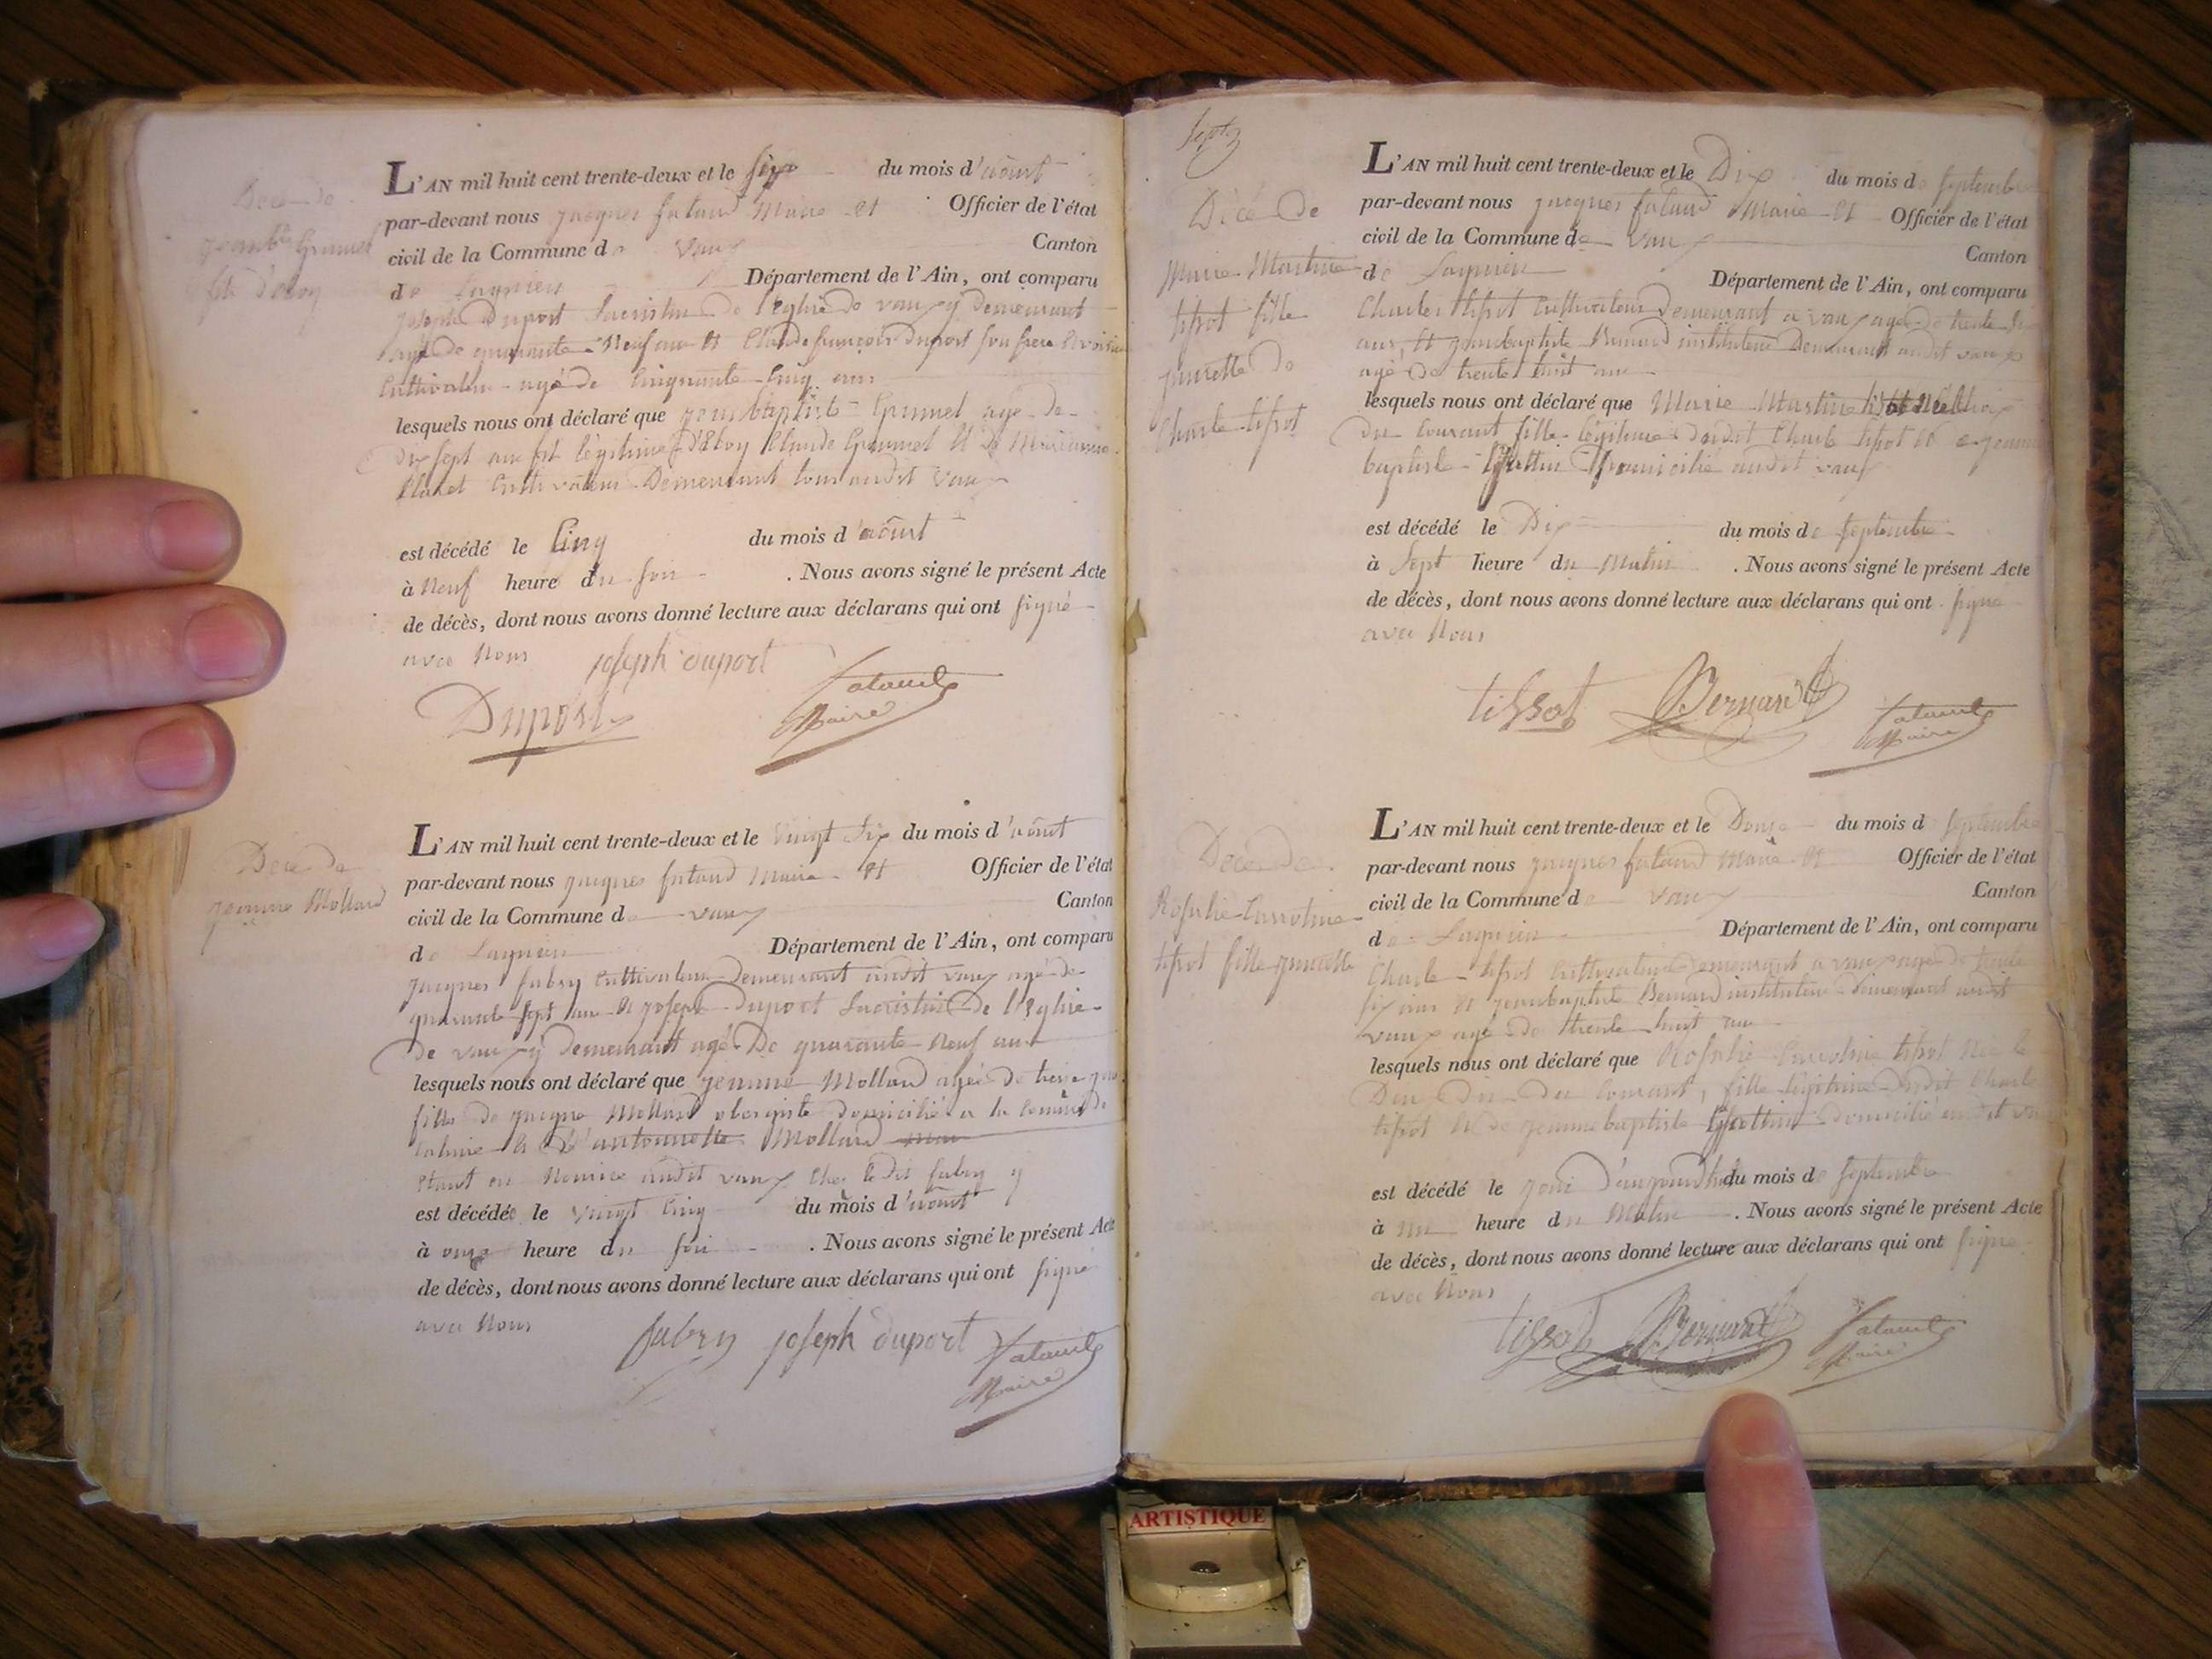 Décé de
jeanbte Grumel
fils d'éloy
L'AN mil huit cent trente-deux et le six du mois d'août
par-devant nous jacques fataud Maire et Officier de l'état
civil de la Commune de vaux Canton
de Lagnieu Département de l'Ain, ont comparu
joseph Duport Sacristin de l'eglise de vaux y demeurant
agé de quarante Neuf ans et Claude françois Duport son frere
Cultivateur agé de Cinquante Cinq ans
lesquels nous ont déclaré que jean baptiste Grumel agé de
dix sept ans fils légitime d'Eloy Claude Grumel et de
Cultivateur Demeurant tous audit Vaux
est décédé le Cinq du mois d'août
à Neuf heure du soir . Nous avons signé le présent Acte
de décès, dont nous avons donné lecture aux déclarans qui ont signé
avec Nous joseph duport
Duport fataud
Maire
Décé de
jeanne Mollard
L'AN mil huit cent trente-deux et le vingt six du mois d'août
par-devant nous jacques fataud Maire et Officier de l'état
civil de la Commune de vaux Canton
de Lagnieu Département de l'Ain, ont comparu
jacques fabry Cultivateur demeurant audit vaux agé de
quarante sept ans et joseph duport Sacristin de l'Eglise
De vaux y demeurant agé De quarante Neuf ans
lesquels nous ont déclaré que jeanne Mollard agée de treize
fille de jacque Mollard domicilié a la Comune de
et d'antoinette Mollard
Etant en Nourice audit vaux Chez le dit fabry y
est décédée le vingt Cinq du mois d'août
à onze heure du soir . Nous avons signé le présent Acte
de décès, dont nous avons donné lecture aux déclarans qui ont signé
avec Nous fabry joseph duport fataud
Maire
Décé De
Marie Martine
tissot fille
jumelle de
Charle tissot
L'AN mil huit cent trente-deux et le Dix du mois de septembre
par-devant nous jacques fataud Maire et Officier de l'état
civil de la Commune de vaux Canton
de Lagnieu Département de l'Ain, ont comparu
Charles tissot Cultivateur Demeurant a vaux agé de trente six
ans, et jeanbaptiste Bernard instituteur Demeurant audit vaux
agé de trente huit ans
lesquels nous ont déclaré que Marie Martine
du Courant fille légitime dudit Charle tissot et de jeanne
baptiste domicilié audit vaux
est décédé le Dix du mois de septembre
à Sept heure du Matin . Nous avons signé le présent Acte
de décès, dont nous avons donné lecture aux déclarans qui ont signé
avec Nous
tissot Bernard fataud
Maire
Décé de
Rosalie Carroline
tissot fille jumelle
L'AN mil huit cent trente-deux et le Douze du mois de septembre
par-devant nous jacques fataud Maire et Officier de l'état
civil de la Commune de vaux Canton
de Lagnieu Département de l'Ain, ont comparu
Charle tissot Cultivateur demeurant a vaux agé de trente
six ans et jeanbaptiste Bernard instituteur demeurant audit
vaux agé de trente huit ans
lesquels nous ont déclaré que Rosalie Carroline tissot Née le
du Courant, fille légitime dudit Charle
tissot et de jeanne baptiste domicilié audit
est décédé le jour d'aujourd'hui du mois de septembre
à heure du Matin . Nous avons signé le présent Acte
de décès, dont nous avons donné lecture aux déclarans qui ont signé
avec Nous
tissot Bernard fataud
Maire
ARTISTIQUE